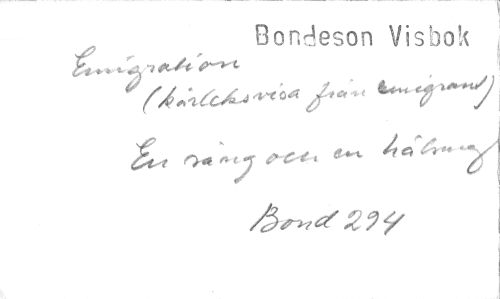 Bondeson Visbok
Emigration
(kärleksvisa från emigrant)
En sång och en hälsning
Bond 294